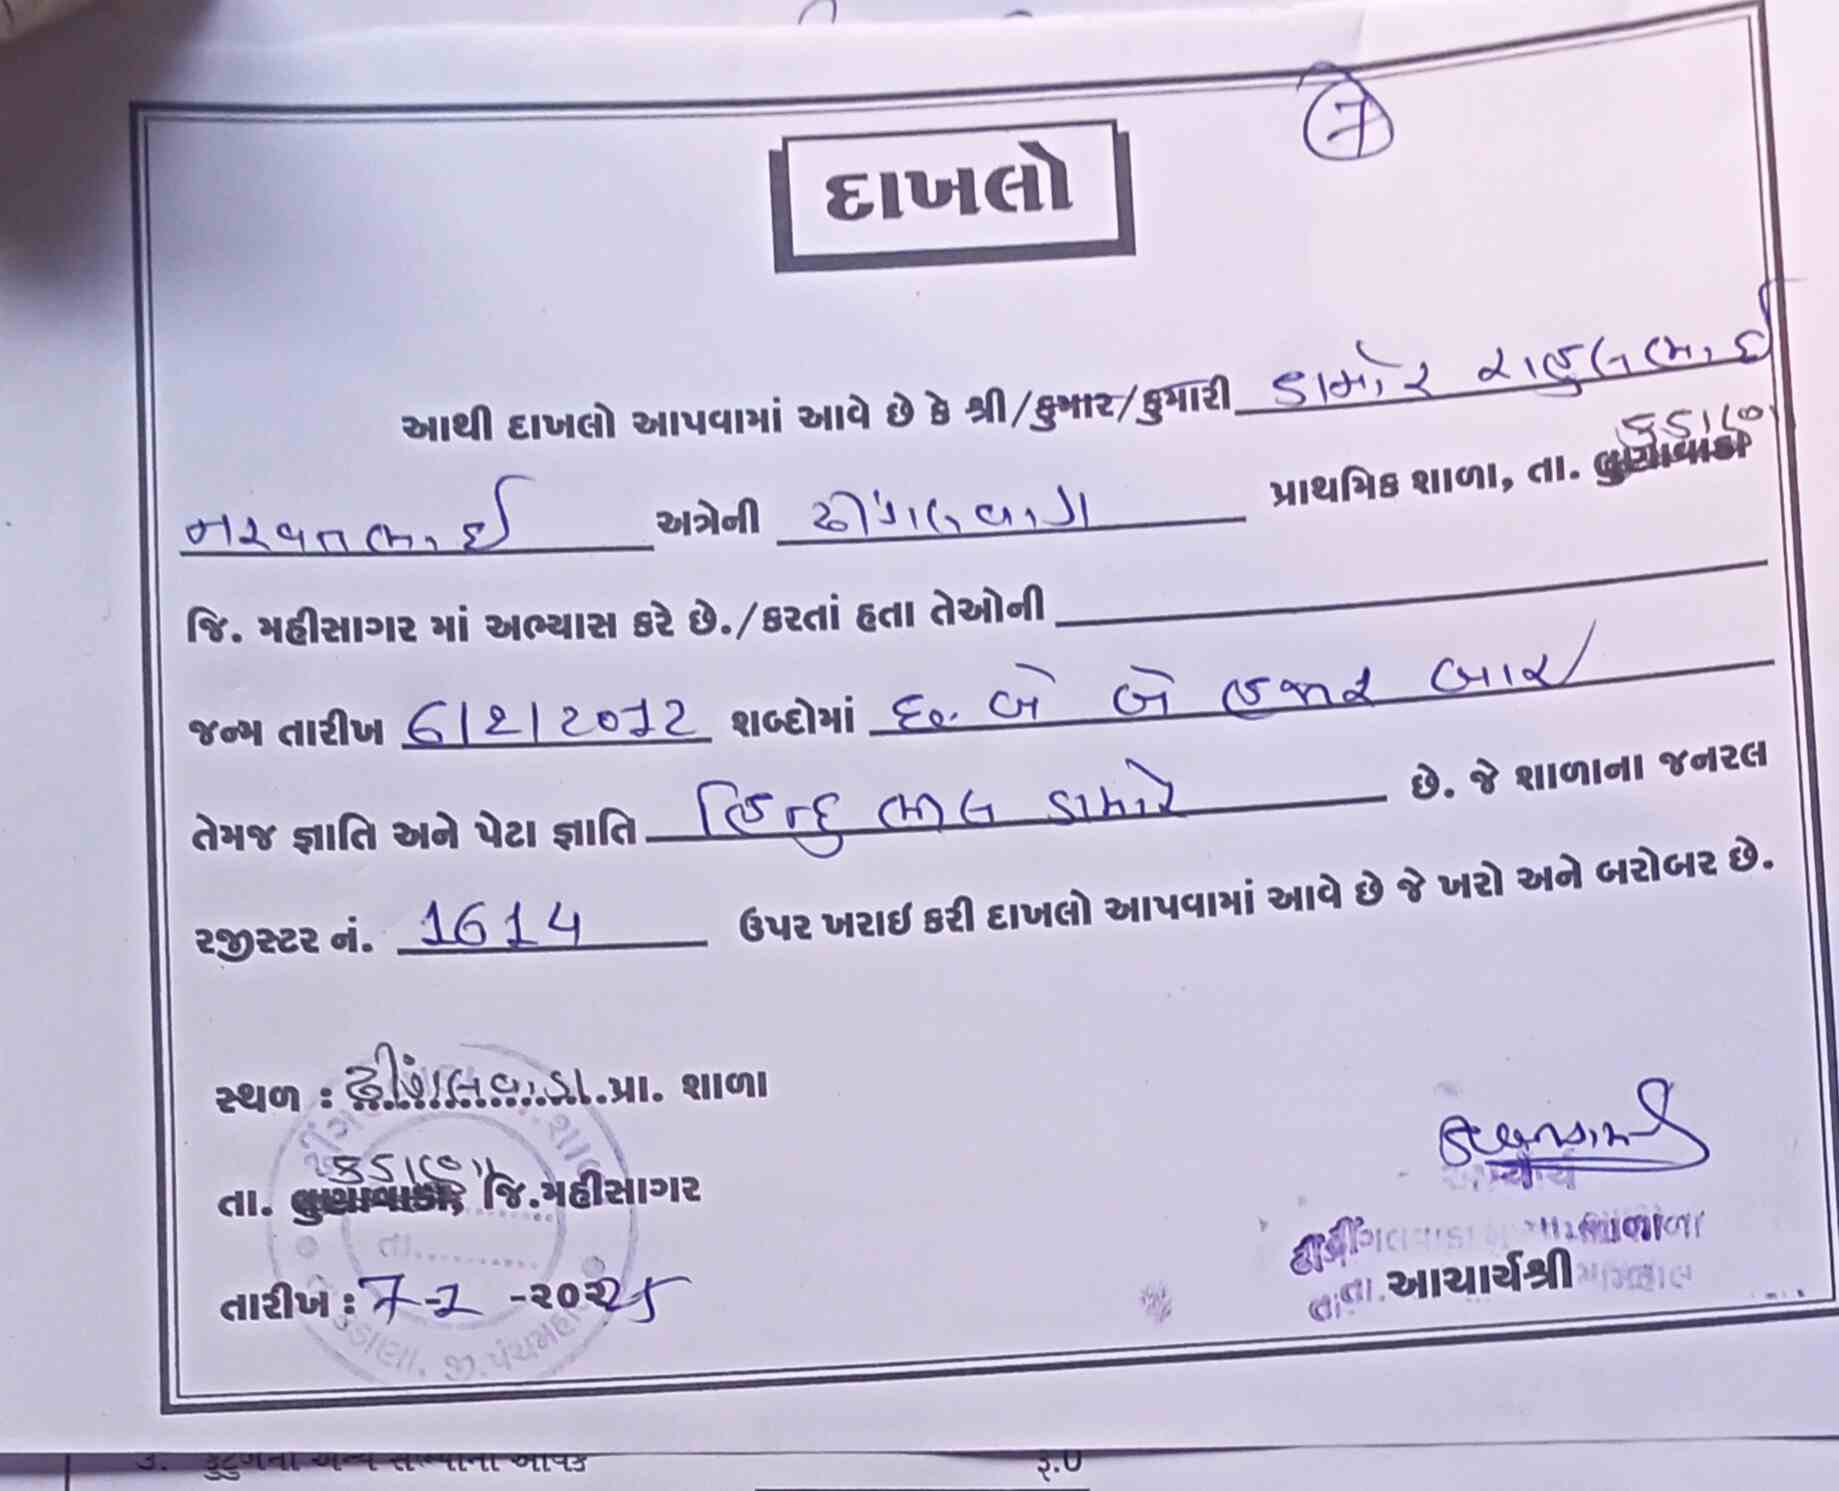 7
દાખલો
આથી દાખલો આપવામાં આવે છે કે શ્રી/કુમાર/કુમારી ડામોર રાહુલભાઈ
કડાણા
નરવતભાઈ અત્રેની ઢીંગલવાડા પ્રાથમિક શાળા, તા. લુણાવાડા
જિ. મહીસાગર માં અભ્યાસ કરે છે./કરતાં હતા તેઓની
જન્મ તારીખ 6/2/2012 શબ્દોમાં છ. બે બે હજાર બાર
તેમજ જ્ઞાતિ અને પેટા જ્ઞાતિ હિન્દુ ભીલ ડામોર છે. જે શાળાના જનરલ
રજીસ્ટર નં. 1614 ઉપર ખરાઈ કરી દાખલો આપવામાં આવે છે જે ખરો અને બરોબર છે.
સ્થળ : ઢીંગલવાડા પ્રા. શાળા
કડાણા
તા. લુણાવાડા, જિ.મહીસાગર
તારીખ : 7-1 -૨૦૨25
આચાર્ય
તા. આચાર્યશ્રી
કડાણા. જી. પંચમહાલ